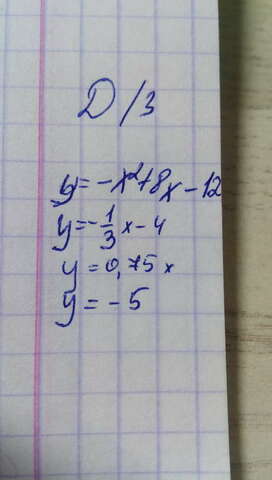 Д/з
y=-x²+8x-12
y=-1/3 x-4
y=0,75x
y=-5